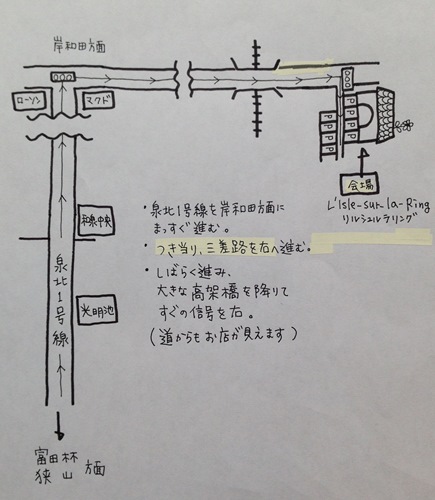 岸和田方面
ローソン
マクド
P
P
P
P
P
P
P
会場
L'Isle-sur-la-Ring
リルシュルラリング
和泉中央
・泉北1号線を岸和田方面に
まっすぐ進む。
・つき当り、三差路を右へ進む。
・しばらく進み、
大きな高架橋を降りて
すぐの信号を右。
(道からもお店が見えます)
泉北1号線
光明池
富田林
狭山
方面